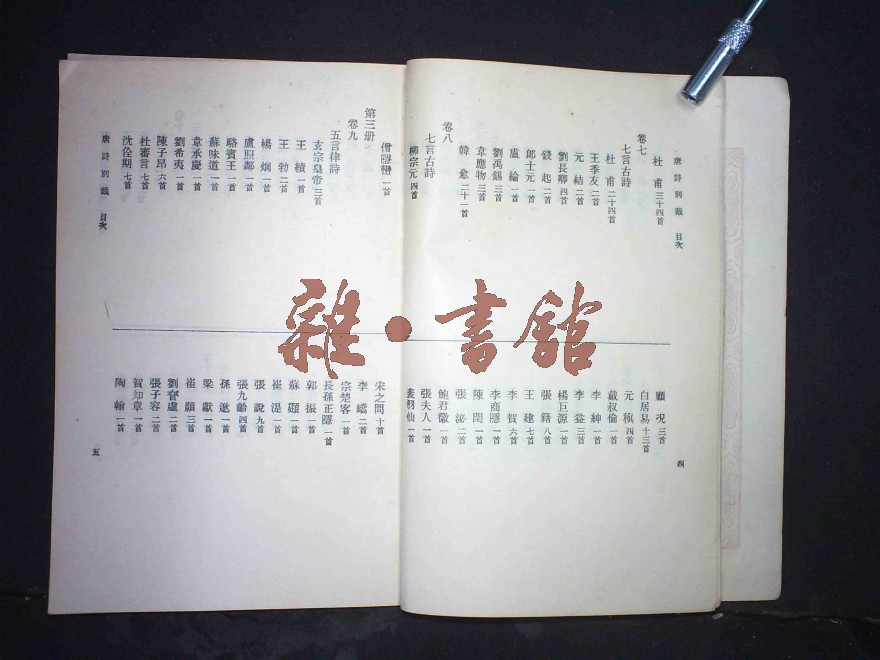 唐詩別裁 目次
杜甫 三十四首
卷七
七言古詩
杜甫 二十四首
王季友 二首
元結 二首
劉長卿 四首
錢起 二首
郎士元 一首
盧綸 一首
劉禹錫 三首
韋應物 三首
韓愈 二十一首
卷八
七言古詩
柳宗元 四首
顧況 三首
白居易 十三首
元稹 四首
戴叔倫 一首
李紳 一首
李益 三首
楊巨源 一首
張籍 八首
王建 七首
李賀 六首
李商隱 一首
陳閏 一首
張泌 二首
鮑君徽 一首
張夫人 一首
裴羽仙 一首
四
僧皎然 一首
第三册
卷九
五言律詩
玄宗皇帝 三首
王績 一首
王勃 二首
楊烱 一首
盧照鄰 一首
駱賓王 一首
蘇味道 一首
韋承慶 一首
劉希夷 一首
陳子昂 六首
杜審言 七首
沈佺期 七首
唐詩別裁 目次
宋之問 十首
李嶠 二首
宗楚客 一首
長孫正隱 一首
郭振 一首
蘇頲 二首
崔湜 一首
張說 九首
張九齡 四首
孫逖 一首
梁獻 一首
崔顥 三首
劉眘虛 一首
張子容 二首
賀知章 一首
陶翰 一首
五
雜·書館